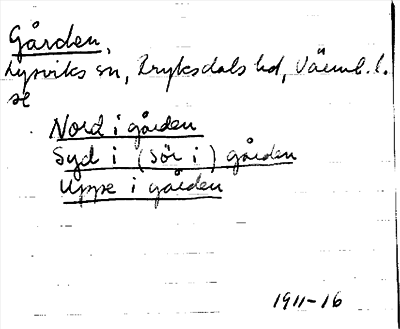 Gården,
Lysviks sn, Fryksdals hd, Värml. l.
se
Nord i gården
Syd i (Sör i) gården
Uppe i gården
1911-16